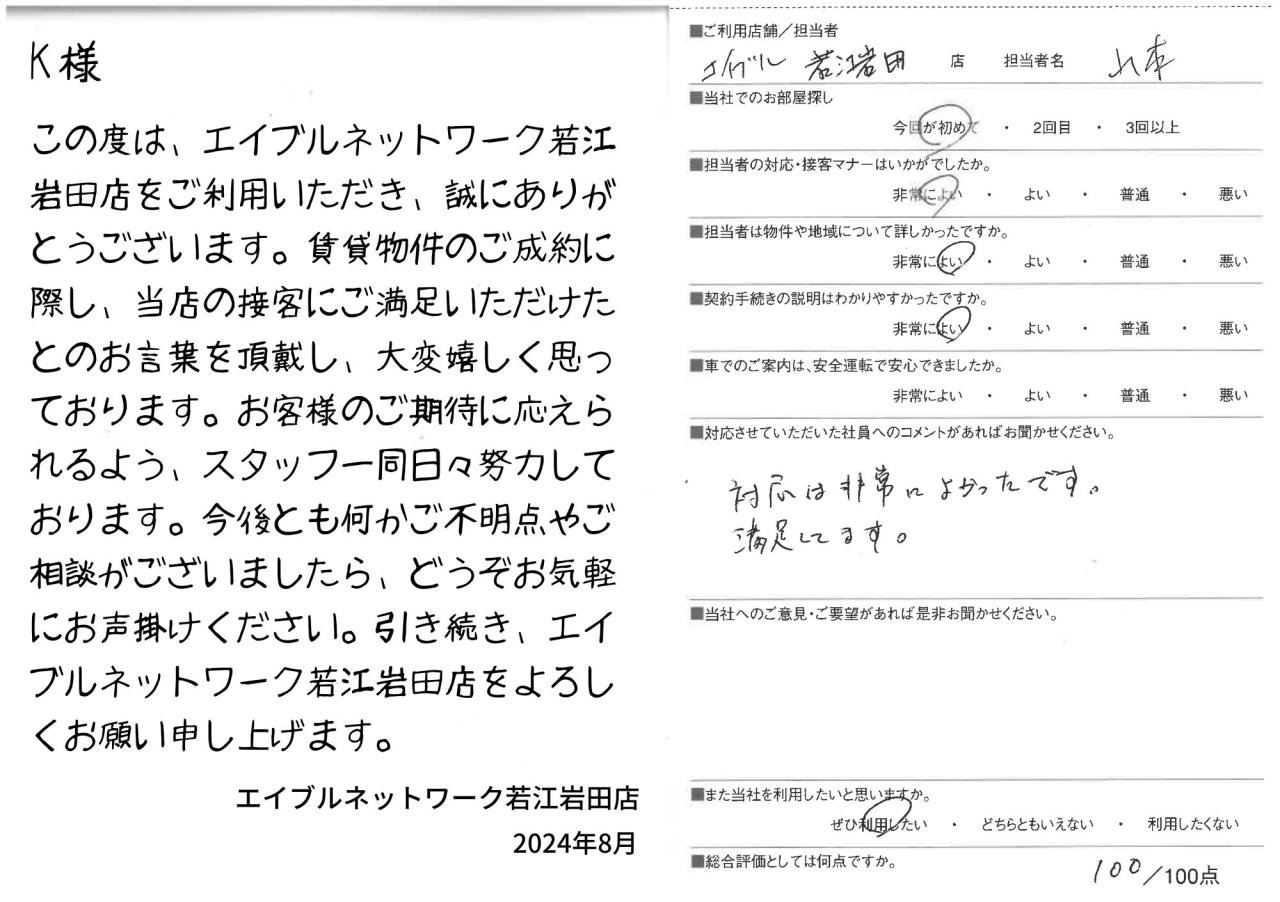 K様
この度は、エイブルネットワーク若江
岩田店をご利用いただき、誠にありが
とうございます。賃貸物件のご成約に
際し、当店の接客にご満足いただけた
とのお言葉を頂戴し、大変嬉しく思っ
ております。お客様のご期待に応えら
れるよう、スタッフ一同日々努力して
おります。今後とも何かご不明点やご
相談がございましたら、どうぞお気軽
にお声掛けください。引き続き、エイ
ブルネットワーク若江岩田店をよろし
くお願い申し上げます。
エイブルネットワーク若江岩田店
2024年8月
■ご利用店舗／担当者
エイブル 若江岩田 店 担当者名 山本
■当社でのお部屋探し
今回が初めて ・ 2回目 ・ 3回以上
■担当者の対応・接客マナーはいかがでしたか。
非常によい ・ よい ・ 普通 ・ 悪い
■担当者は物件や地域について詳しかったですか。
非常によい ・ よい ・ 普通 ・ 悪い
■契約手続きの説明はわかりやすかったですか。
非常によい ・ よい ・ 普通 ・ 悪い
■車でのご案内は、安全運転で安心できましたか。
非常によい ・ よい ・ 普通 ・ 悪い
■対応させていただいた社員へのコメントがあればお聞かせください。
対応は非常によかったです。
満足してます。
■当社へのご意見・ご要望があれば是非お聞かせください。
■また当社を利用したいと思いますか。
ぜひ利用したい ・ どちらともいえない ・ 利用したくない
■総合評価としては何点ですか。
100/100点